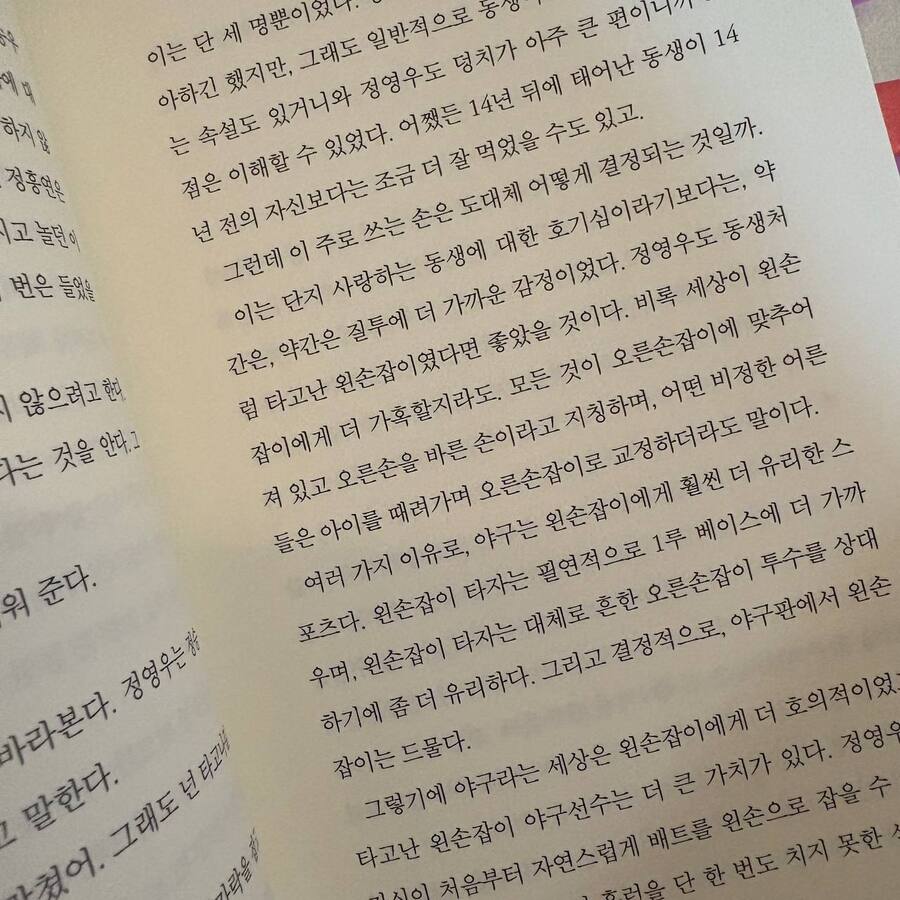 하지 않
정흥연은
지고 놀던 이
번은 들었을
않으려고 한다.
다는 것을 안다. 그
워 준다.
바라본다. 정영우는
고 말한다.
쳤어. 그래도 넌 타고나
이는 단 세 명뿐이었다.
아하긴 했지만, 그래도 일반적으로 동생이
는 속설도 있거니와 정영우도 덩치가 아주 큰 편이니까
점은 이해할 수 있었다. 어쨌든 14년 뒤에 태어난 동생이 14
년 전의 자신보다는 조금 더 잘 먹었을 수도 있고.
그런데 이 주로 쓰는 손은 도대체 어떻게 결정되는 것일까.
이는 단지 사랑하는 동생에 대한 호기심이라기보다는, 약
간은, 약간은 질투에 더 가까운 감정이었다. 정영우도 동생처
럼 타고난 왼손잡이였다면 좋았을 것이다. 비록 세상이 왼손
잡이에게 더 가혹할지라도. 모든 것이 오른손잡이에 맞추어
져 있고 오른손을 바른 손이라고 지칭하며, 어떤 비정한 어른
들은 아이를 때려가며 오른손잡이로 교정하더라도 말이다.
여러 가지 이유로, 야구는 왼손잡이에게 훨씬 더 유리한 스
포츠다. 왼손잡이 타자는 필연적으로 1루 베이스에 더 가까
우며, 왼손잡이 타자는 대체로 흔한 오른손잡이 투수를 상대
하기에 좀 더 유리하다. 그리고 결정적으로, 야구판에서 왼손
잡이는 드물다.
그렇기에 야구라는 세상은 왼손잡이에게 더 호의적이었고
타고난 왼손잡이 야구선수는 더 큰 가치가 있다. 정영우
처음부터 자연스럽게 배트를 왼손으로 잡을 수
홈런을 단 한 번도 치지 못한